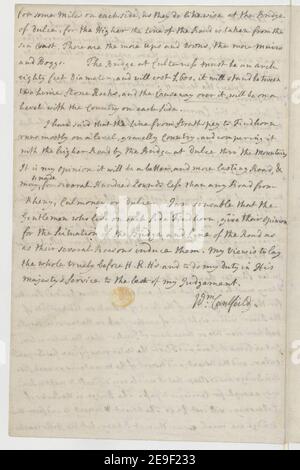 for some Miles on each side, as they do likewise at the Bridge
of Dulcie, for the Higher the Line of the Road is taken from the
Sea Coast. There are the more Ups and Downs, the more Muirs
and Boggs. The Bridge at Culterness must be an arch
Eighty feet Diameter, and will cost £800, it will stand between
two Live Stone Rocks, and the Causeway over it, will be on a
Levell with the Country on each side.
I have said that the Line from Strathspey to Findhorn
runs mostly on a level, gravelly Country, and comparing it
with the higher Road by the Bridge at Dulcie thro the Mountains
It is my opinion it will be a better, and more lasting Road, &
may be made for several Hundred Pounds less than any Road from
or Dulcie. I am sensible that the
Gentlemen who live on each side Findhorn, give their Opinion
for the Situation of the Bridge and Line of the Road as
as their several Reasons induce them. My view is to lay
the whole truely before H.R.Hs and to do my Duty in His
Majestys Service to the best of my Judgement.
Wm. Caulfeild.
alamy
Image ID: 2E9F233
www.alamy.com